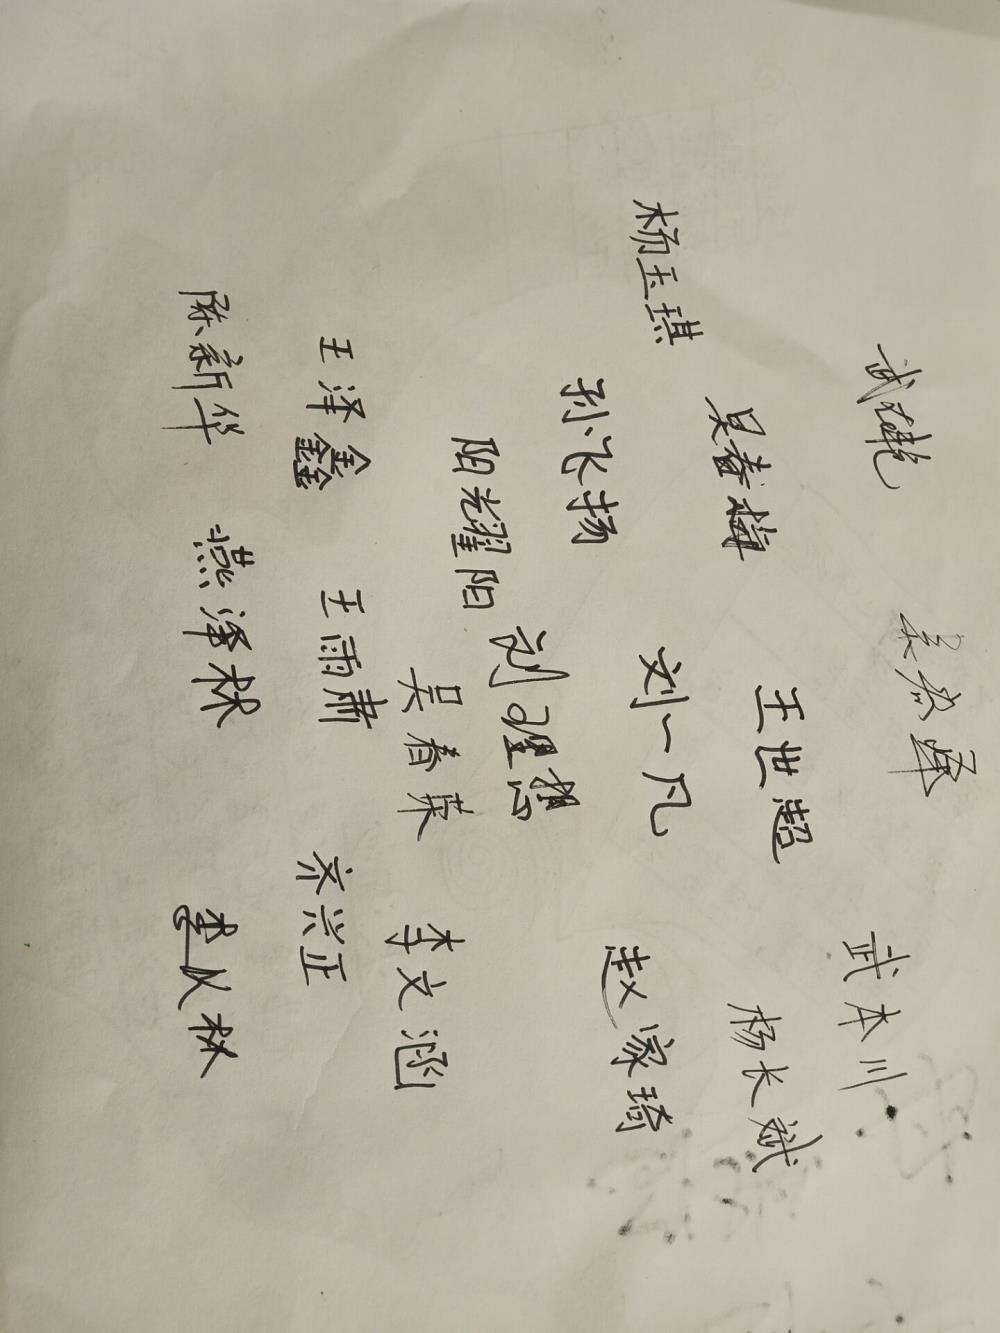 武艳
武本川
吴春梅
王世超
杨长斌
杨玉琪
孙飞扬
刘一凡
赵家琦
阳耀阳
刘理想
吴春英
李文涵
王泽鑫
王雨肃
齐兴正
陈新华
燕泽林
李从林